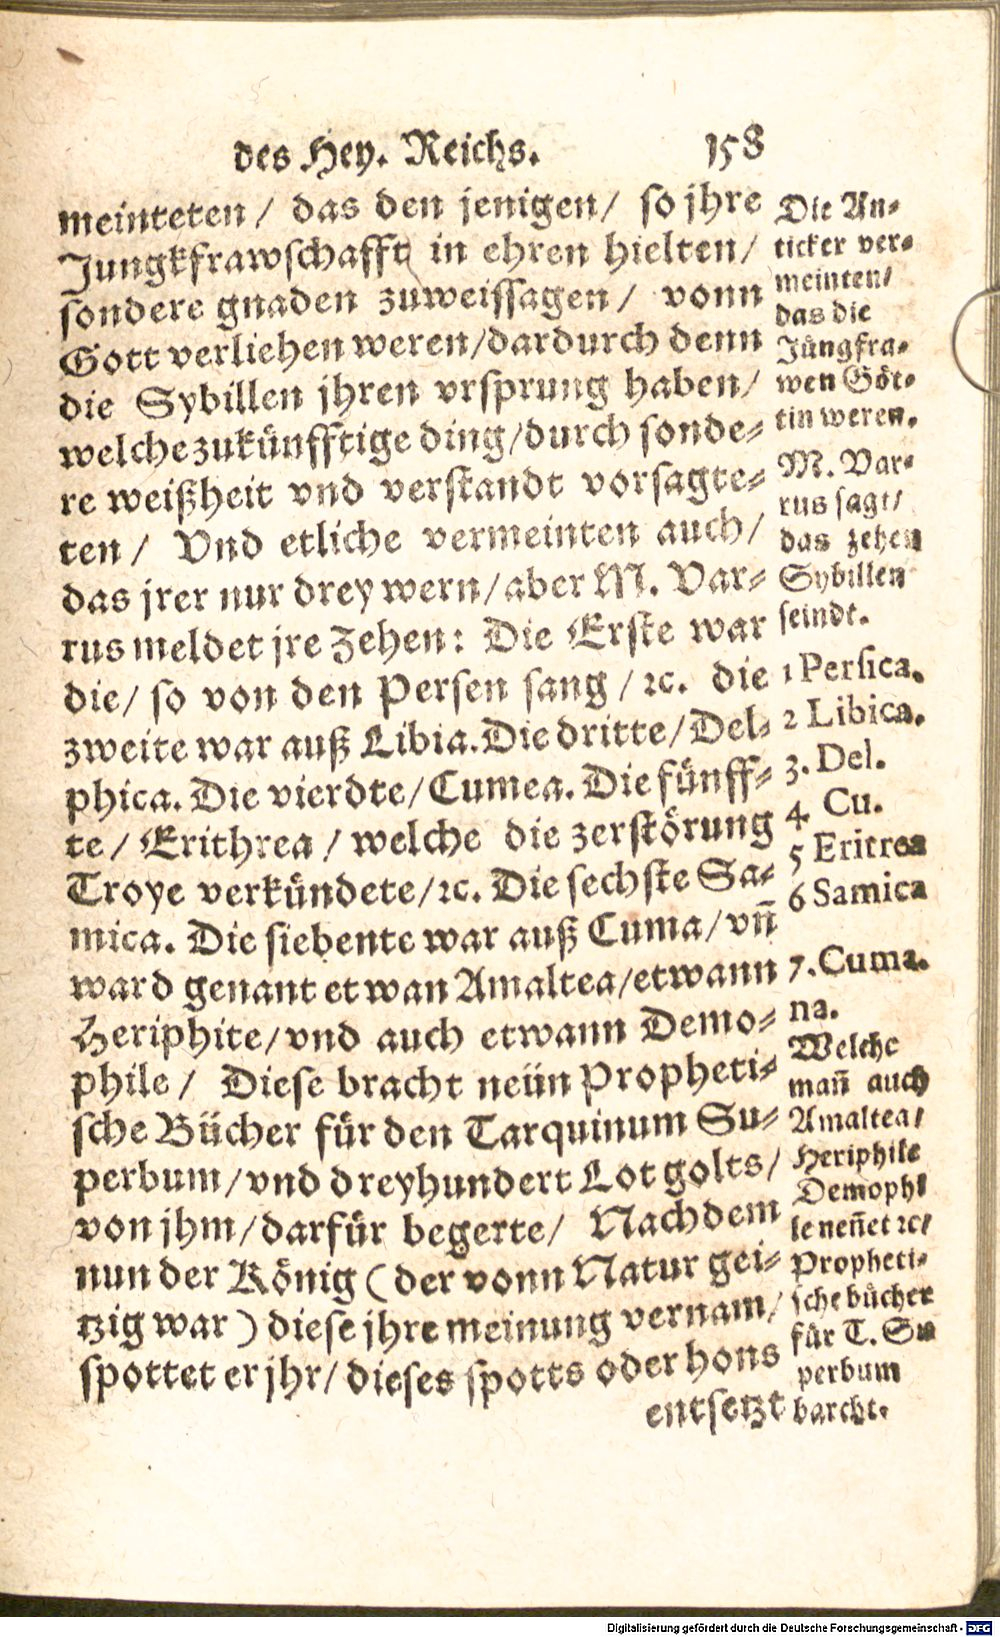 des Hey. Reichs. 158
meinteten / das den jenigen / so jhre
Jungkfrawschafft in ehren hielten /
sondere gnaden zuweissagen / vonn
Gott verliehen weren / dardurch denn
die Sybillen jhren vrsprung haben /
welche zukünfftige ding / durch sonde-
re weißheit vnd verstandt vorsagte-
ten / Vnd etliche vermeinten auch /
das jrer nur drey wern / aber M. Var-
rus meldet jre Zehen: Die Erste war
die / so von den Persen sang / ꝛc. die
zweite war auß Libia. Die dritte / Del-
phica. Die vierdte / Cumea. Die fünff-
te / Erithrea / welche die zerstörung
Troye verkündete / ꝛc. Die sechste Sa-
mica. Die siebente war auß Cuma / vn̄
ward genant etwan Amaltea / etwann
Heriphite / vnd auch etwann Demo-
phile / Diese bracht neün Propheti-
sche Bücher für den Tarquinum Su-
perbum / vnd dreyhundert Lot golts /
von jhm / darfür begerte / Nachdem
nun der König ( der vonn Natur gei-
tzig war ) diese jhre meinung vernam /
spottet er jhr / dieses spotts oder hons
entsetzt
Die An-
ticker ver-
meinten /
das die
Jüngfra-
wen Göt-
tin weren.
M. Var-
rus sagt /
das zehen
Sybillen
seindt.
1 Persica.
2 Libica.
3. Del.
4. Cu.
5 Eritrea
6 Samica
7. Cuma.
na.
Welche
man̄ auch
Amaltea /
Heriphile
Demophi
le nen̄et ꝛc /
Propheti-
sche bücher
für T. Su
perbum
barcht.
Digitalisierung gefördert durch die Deutsche Forschungsgemeinschaft - DFG